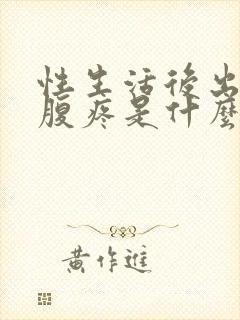 性生活後出
腹疼是什麼
黃作進